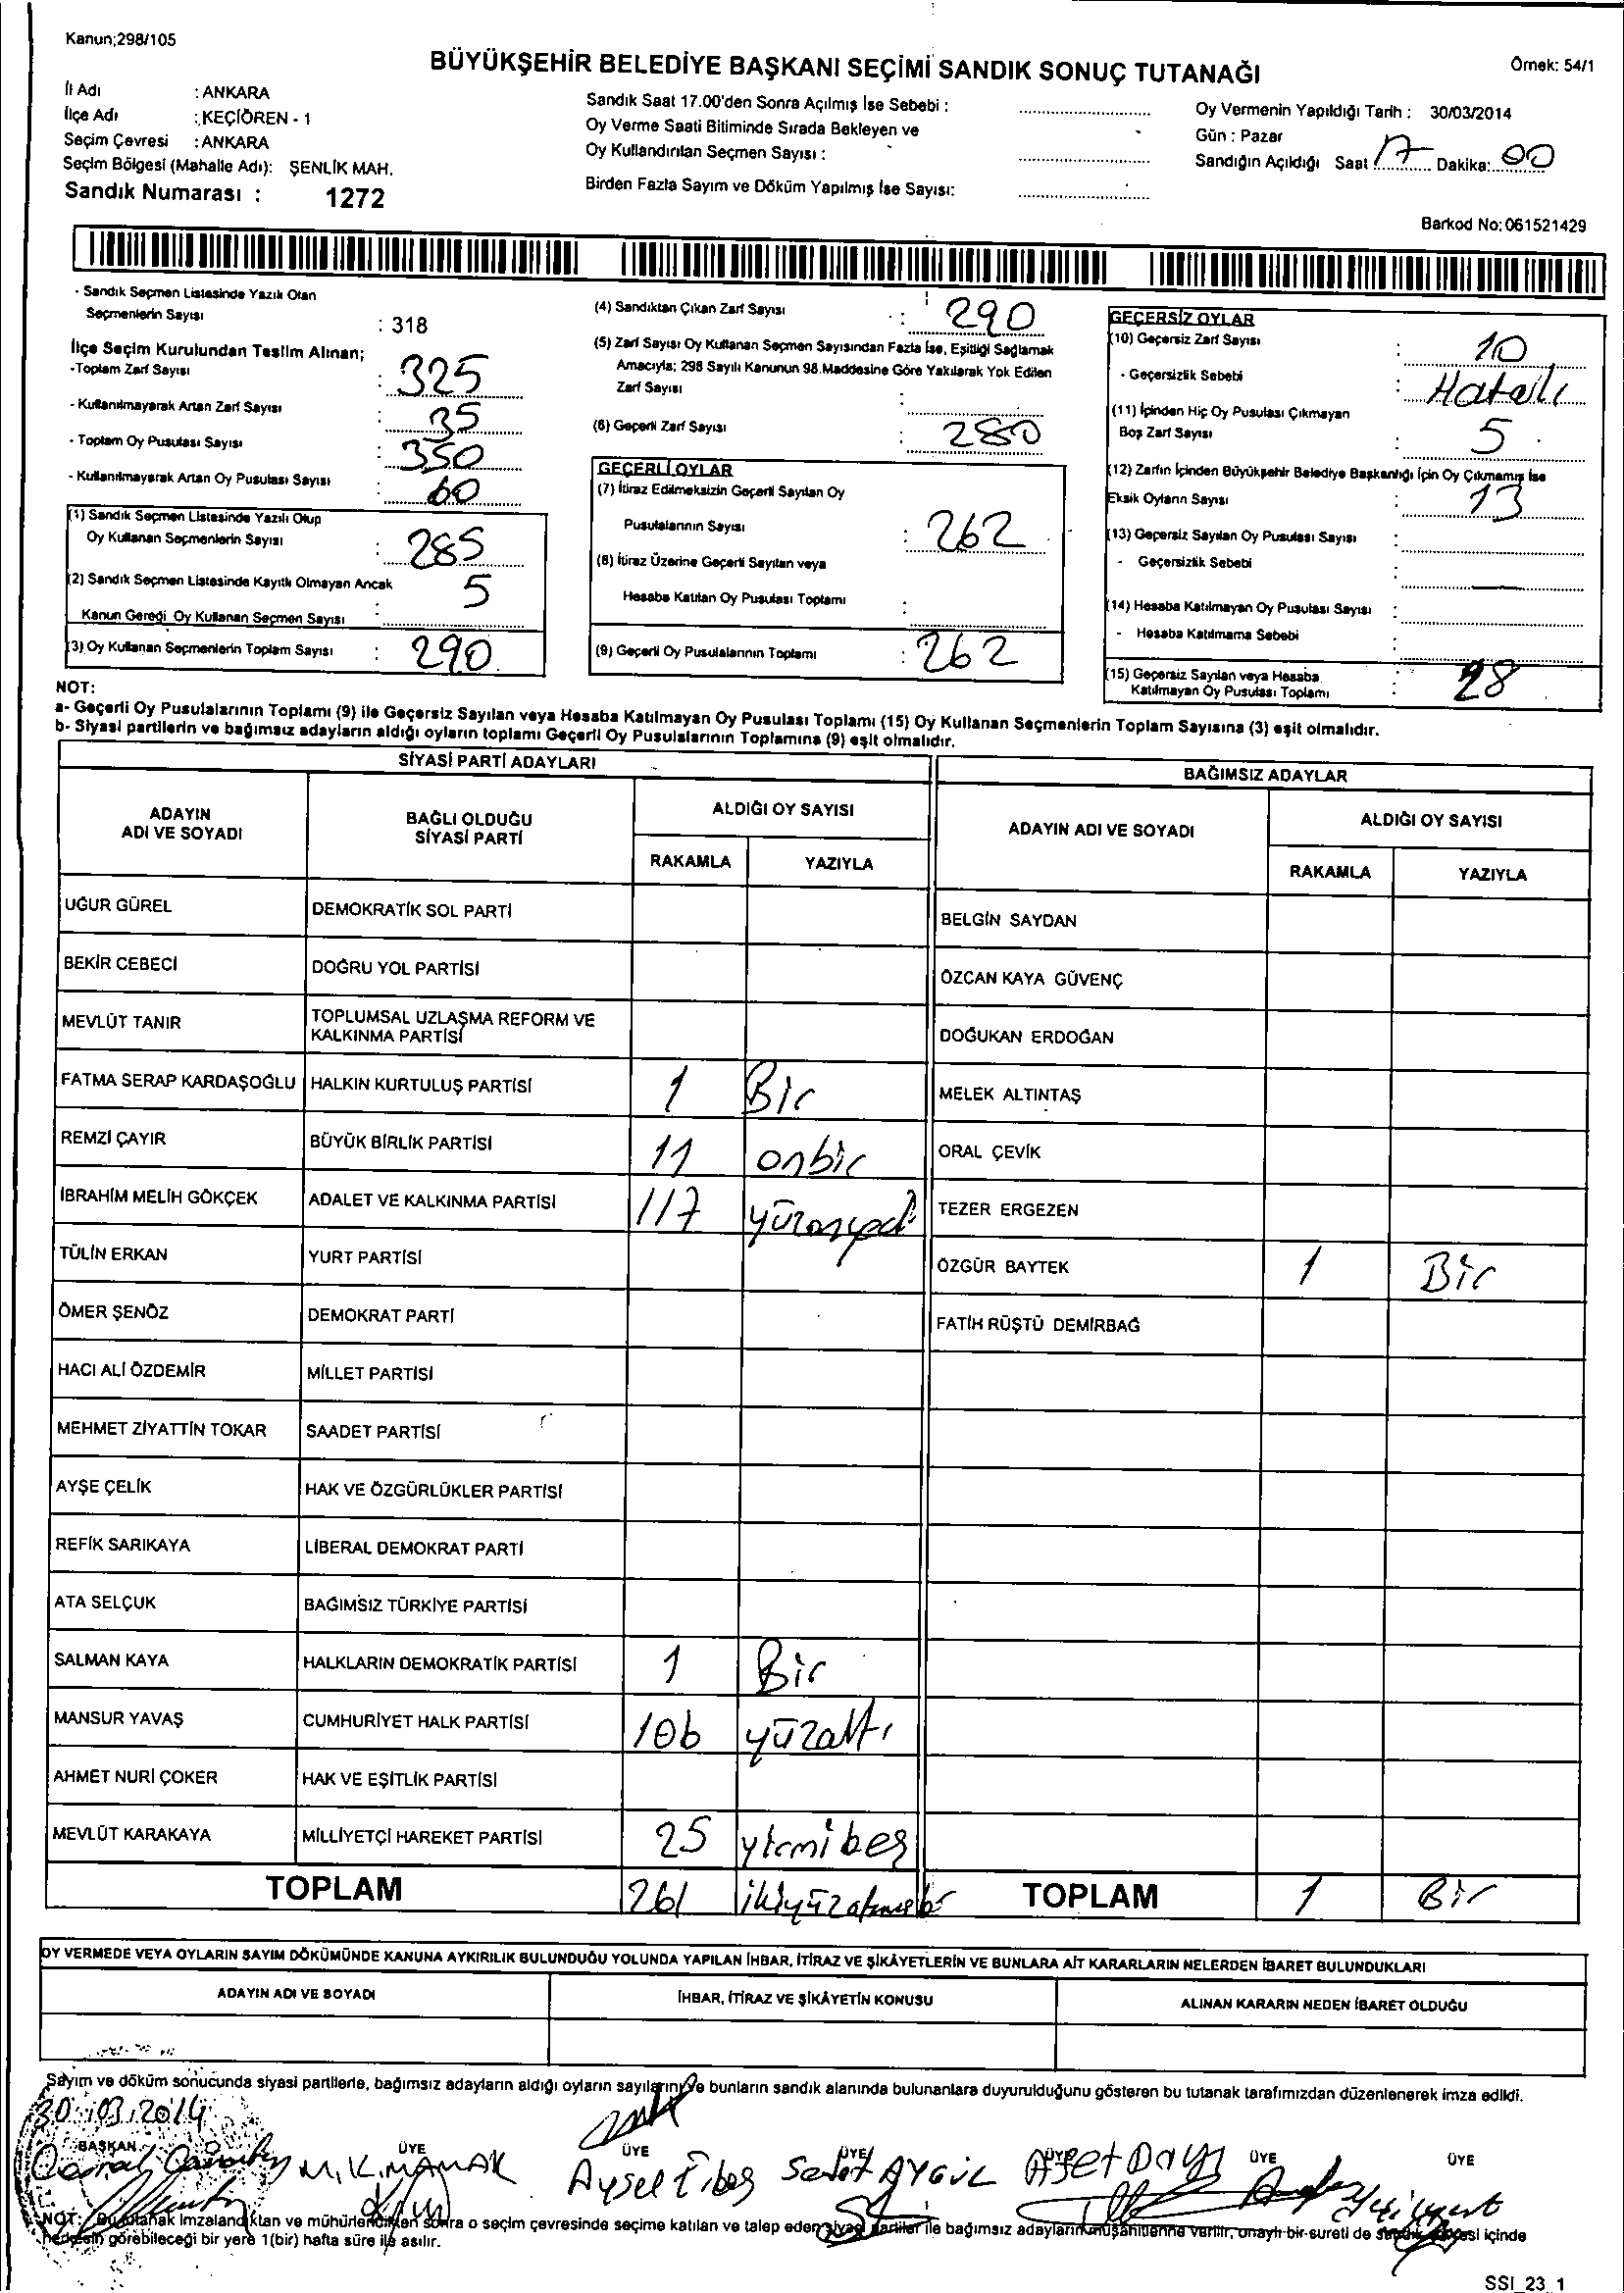 Kanun;298/105
BÜYÜKŞEHİR BELEDİYE BAŞKANI SEÇİMİ SANDIK SONUÇ TUTANAĞI
Örnek: 54/1
İl Adı : ANKARA
İlçe Adı : KEÇİÖREN - 1
Seçim Çevresi : ANKARA
Seçim Bölgesi (Mahalle Adı): ŞENLİK MAH.
Sandık Numarası : 1272
Sandık Saat 17.00'den Sonra Açılmış İse Sebebi :
Oy Verme Saati Bitiminde Sırada Bekleyen ve
Oy Kullandırılan Seçmen Sayısı :
Birden Fazla Sayım ve Döküm Yapılmış İse Sayısı:
Oy Vermenin Yapıldığı Tarih : 30/03/2014
Gün : Pazar
Sandığın Açıldığı Saat 17 Dakika: 00
Barkod No: 061521429
- Sandık Seçmen Listesinde Yazılı Olan
Seçmenlerin Sayısı : 318
İlçe Seçim Kurulundan Teslim Alınan;
-Toplam Zarf Sayısı : 325
- Kullanılmayarak Artan Zarf Sayısı : 35
- Toplam Oy Pusulası Sayısı : 350
- Kullanılmayarak Artan Oy Pusulası Sayısı : 60
(1) Sandık Seçmen Listesinde Yazılı Olup
Oy Kullanan Seçmenlerin Sayısı : 285
(2) Sandık Seçmen Listesinde Kayıtlı Olmayan Ancak
Kanun Gereği Oy Kullanan Seçmen Sayısı : 5
(3) Oy Kullanan Seçmenlerin Toplam Sayısı : 290
(4) Sandıktan Çıkan Zarf Sayısı : 290
(5) Zarf Sayısı Oy Kullanan Seçmen Sayısından Fazla İse, Eşitliği Sağlamak
Amacıyla; 298 Sayılı Kanunun 98.Maddesine Göre Yakılarak Yok Edilen
Zarf Sayısı :
(6) Geçerli Zarf Sayısı : 280
GEÇERLİ OYLAR
(7) İtiraz Edilmeksizin Geçerli Sayılan Oy
Pusulalarının Sayısı : 262
(8) İtiraz Üzerine Geçerli Sayılan veya
Hesaba Katılan Oy Pusulası Toplamı :
(9) Geçerli Oy Pusulalarının Toplamı : 262
GEÇERSİZ OYLAR
(10) Geçersiz Zarf Sayısı : 10
- Geçersizlik Sebebi : Hatalı
(11) İçinden Hiç Oy Pusulası Çıkmayan
Boş Zarf Sayısı : 5
(12) Zarfın İçinden Büyükşehir Belediye Başkanlığı İçin Oy Çıkmamış İse
Eksik Oyların Sayısı : 13
(13) Geçersiz Sayılan Oy Pusulası Sayısı :
- Geçersizlik Sebebi :
(14) Hesaba Katılmayan Oy Pusulası Sayısı :
- Hesaba Katılmama Sebebi :
(15) Geçersiz Sayılan veya Hesaba
Katılmayan Oy Pusulası Toplamı : 28
NOT:
a- Geçerli Oy Pusulalarının Toplamı (9) ile Geçersiz Sayılan veya Hesaba Katılmayan Oy Pusulası Toplamı (15) Oy Kullanan Seçmenlerin Toplam Sayısına (3) eşit olmalıdır.
b- Siyasi partilerin ve bağımsız adayların aldığı oyların toplamı Geçerli Oy Pusulalarının Toplamına (9) eşit olmalıdır.
SİYASİ PARTİ ADAYLARI
ADAYIN ADI VE SOYADI
BAĞLI OLDUĞU SİYASİ PARTİ
ALDIĞI OY SAYISI
RAKAMLA YAZIYLA
UĞUR GÜREL DEMOKRATİK SOL PARTİ
BEKİR CEBECİ DOĞRU YOL PARTİSİ
MEVLÜT TANIR TOPLUMSAL UZLAŞMA REFORM VE KALKINMA PARTİSİ
FATMA SERAP KARDAŞOĞLU HALKIN KURTULUŞ PARTİSİ 1 Bir
REMZİ ÇAYIR BÜYÜK BİRLİK PARTİSİ 11 onbir
İBRAHİM MELİH GÖKÇEK ADALET VE KALKINMA PARTİSİ 117 yüzonyedi
TÜLİN ERKAN YURT PARTİSİ
ÖMER ŞENÖZ DEMOKRAT PARTİ
HACI ALİ ÖZDEMİR MİLLET PARTİSİ
MEHMET ZİYATTİN TOKAR SAADET PARTİSİ
AYŞE ÇELİK HAK VE ÖZGÜRLÜKLER PARTİSİ
REFİK SARIKAYA LİBERAL DEMOKRAT PARTİ
ATA SELÇUK BAĞIMSIZ TÜRKİYE PARTİSİ
SALMAN KAYA HALKLARIN DEMOKRATİK PARTİSİ 1 Bir
MANSUR YAVAŞ CUMHURİYET HALK PARTİSİ 106 yüzaltı
AHMET NURİ ÇOKER HAK VE EŞİTLİK PARTİSİ
MEVLÜT KARAKAYA MİLLİYETÇİ HAREKET PARTİSİ 25 yirmibeş
TOPLAM 261 ikiyüzatmışbir
BAĞIMSIZ ADAYLAR
ADAYIN ADI VE SOYADI
ALDIĞI OY SAYISI
RAKAMLA YAZIYLA
BELGİN SAYDAN
ÖZCAN KAYA GÜVENÇ
DOĞUKAN ERDOĞAN
MELEK ALTINTAŞ
ORAL ÇEVİK
TEZER ERGEZEN
ÖZGÜR BAYTEK 1 Bir
FATİH RÜŞTÜ DEMİRBAĞ
TOPLAM 1 Bir
OY VERMEDE VEYA OYLARIN SAYIM DÖKÜMÜNDE KANUNA AYKIRILIK BULUNDUĞU YOLUNDA YAPILAN İHBAR, İTİRAZ VE ŞİKÂYETLERİN VE BUNLARA AİT KARARLARIN NELERDEN İBARET BULUNDUKLARI
ADAYIN ADI VE SOYADI İHBAR, İTİRAZ VE ŞİKÂYETİN KONUSU ALINAN KARARIN NEDEN İBARET OLDUĞU
Sayım ve döküm sonucunda siyasi partilerle, bağımsız adayların aldığı oyların sayılarını ve bunların sandık alanında bulunanlara duyurulduğunu gösteren bu tutanak tarafımızdan düzenlenerek imza edildi.
30.03.2014
BAŞKAN ÜYE ÜYE ÜYE ÜYE ÜYE ÜYE
M.K.MAMAK Aysel Sedat AYGÜL
NOT: Bu tutanak imzalandıktan ve mühürlendikten sonra o seçim çevresinde seçime katılan ve talep eden siyasi partiler ile bağımsız adayların müşahitlerine verilir, onaylı bir sureti de sandık çevresi içinde
herkesin görebileceği bir yere 1(bir) hafta süre ile asılır.
SSI_23_1